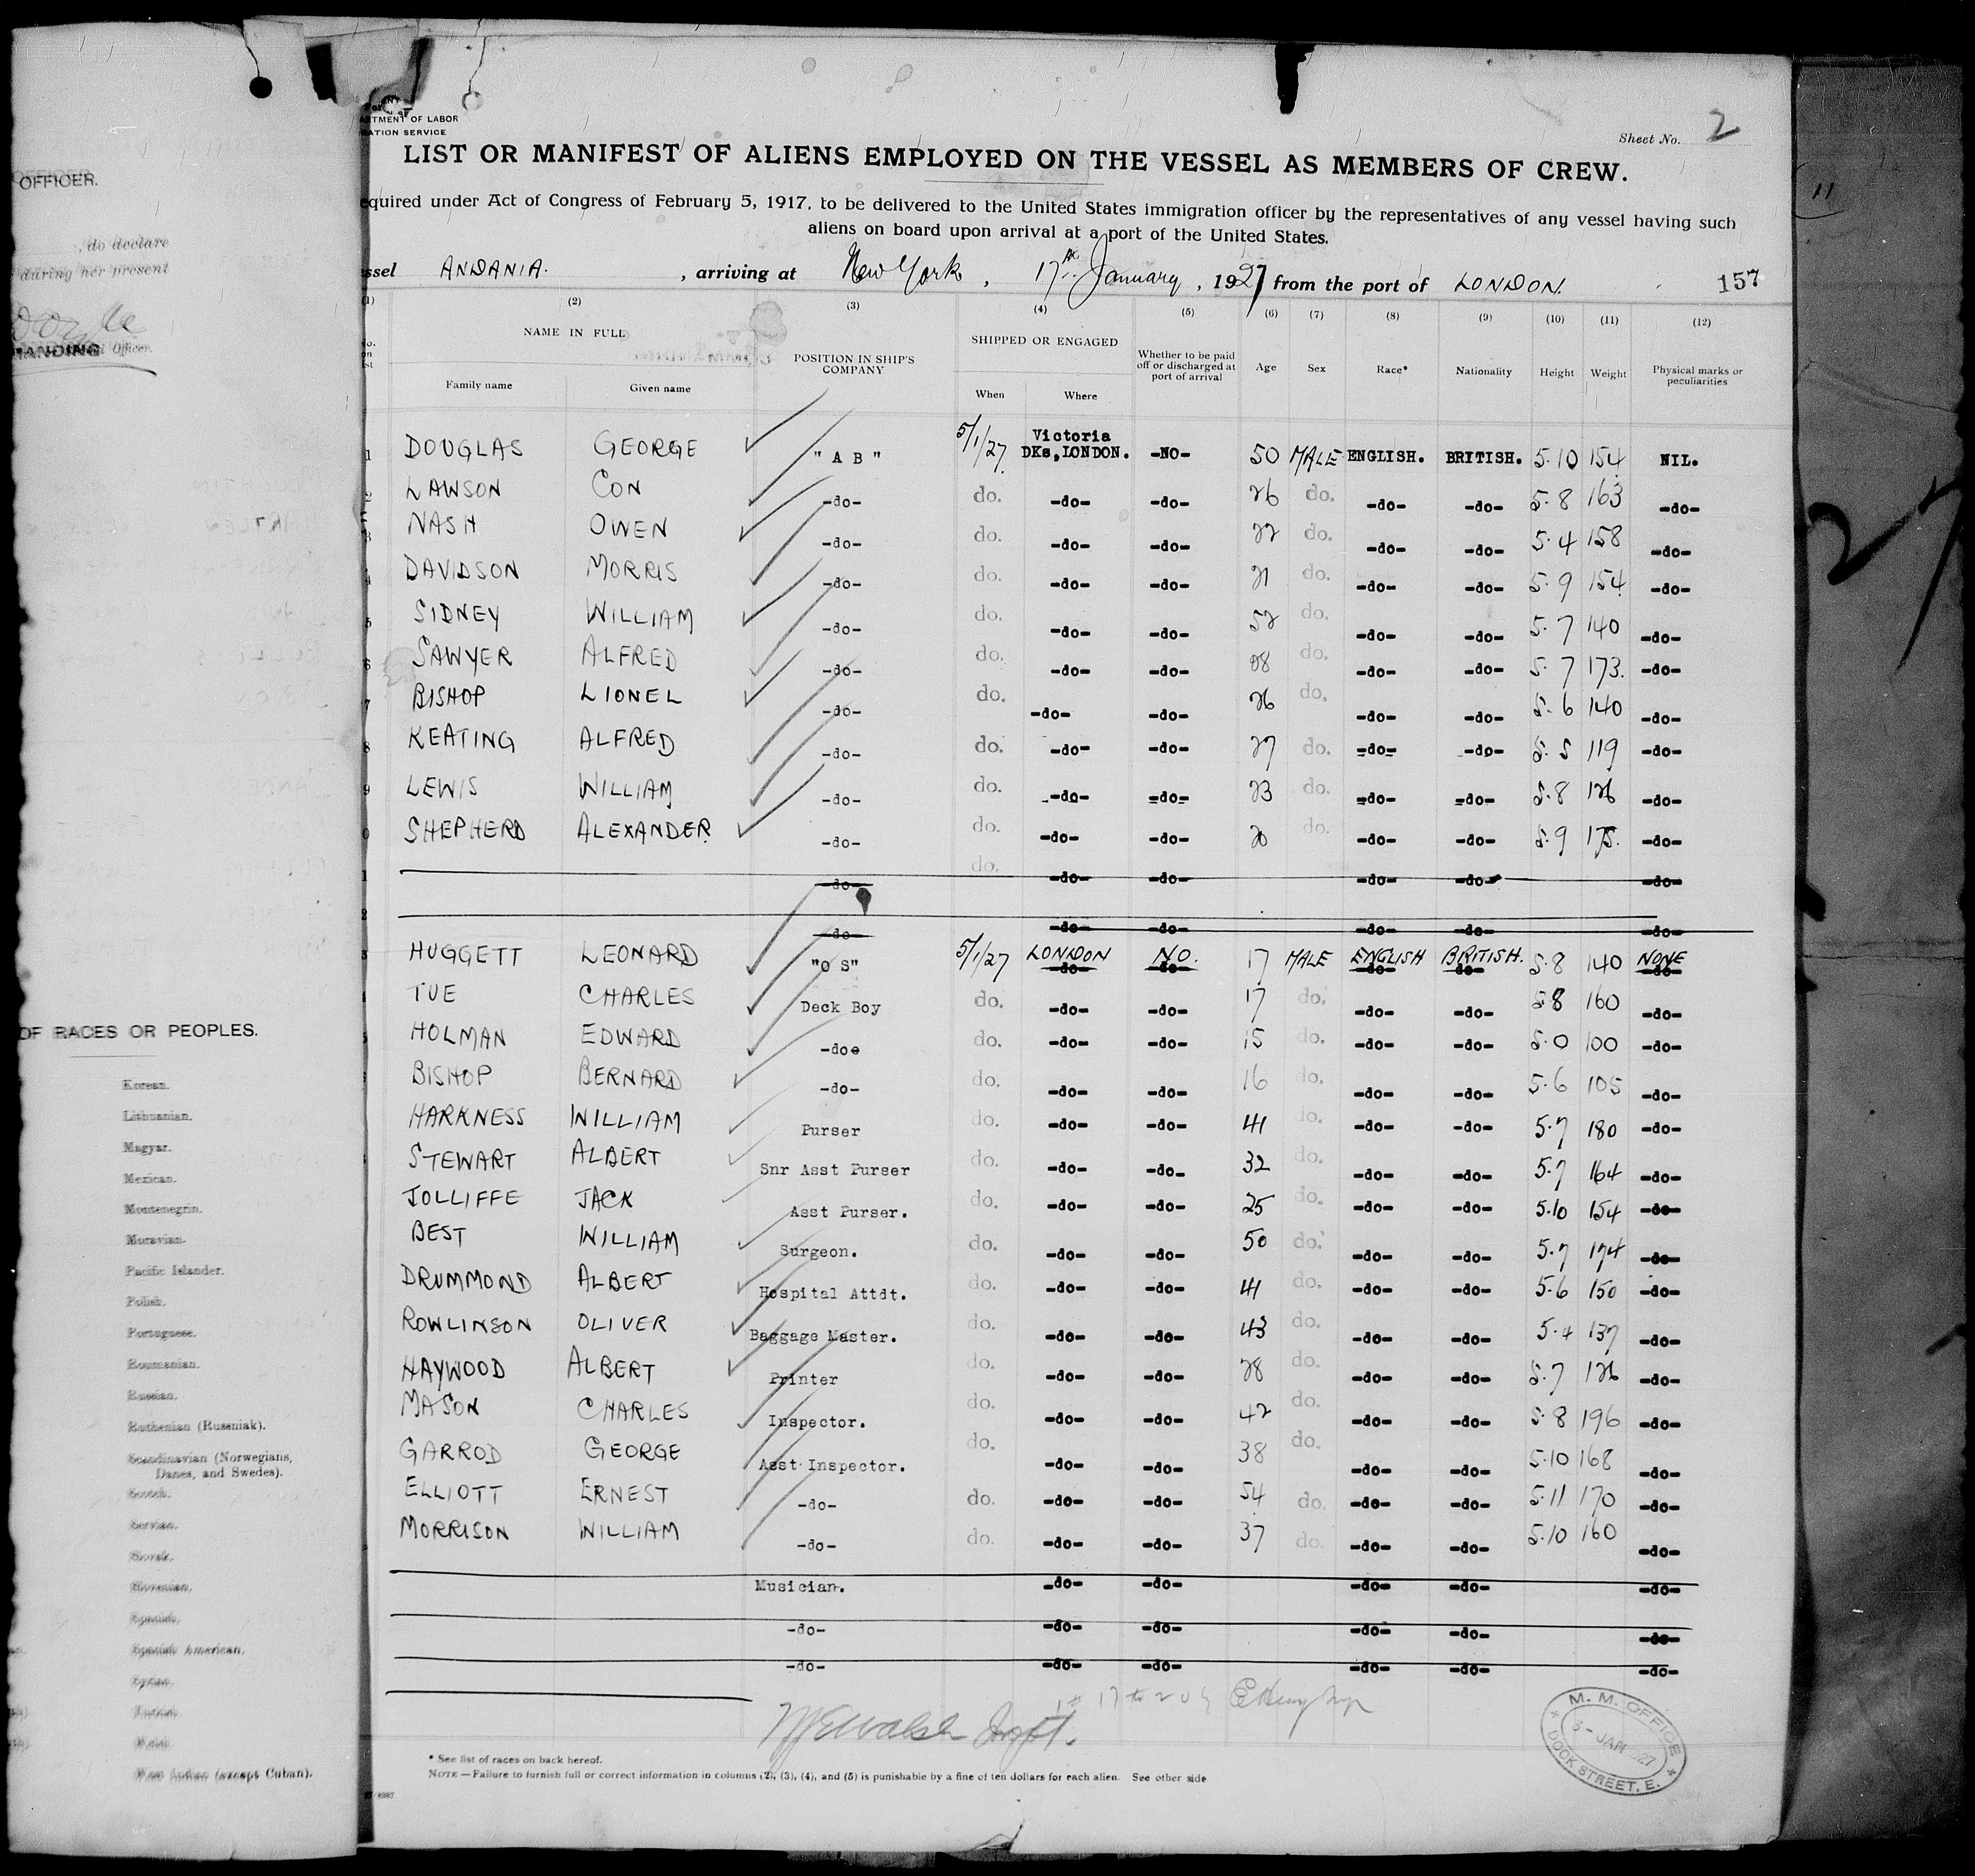 OFFICER.
, do declare
during her present
MANDING Officer.
OF RACES OR PEOPLES.
Korean.
Lithuanian.
Magyar.
Mexican.
Montenegrin.
Moravian.
Pacific Islander.
Polish.
Portuguese.
Roumanian.
Russian.
Ruthenian (Russniak).
Scandinavian (Norwegians,
Danes, and Swedes).
Scotch.
Servian.
Slovak.
Slovenian.
Spanish.
Spanish American.
Syrian.
Turkish.
Welsh.
West Indian (except Cuban).
ARTMENT OF LABOR
RATION SERVICE
Sheet No. 2
LIST OR MANIFEST OF ALIENS EMPLOYED ON THE VESSEL AS MEMBERS OF CREW.
equired under Act of Congress of February 5, 1917, to be delivered to the United States immigration officer by the representatives of any vessel having such
aliens on board upon arrival at a port of the United States.
ssel ANDANIA. , arriving at New York , 17th January , 1927 from the port of LONDON. 157
(1) (2) (3) (4) (5) (6) (7) (8) (9) (10) (11) (12)
NAME IN FULL POSITION IN SHIP'S COMPANY SHIPPED OR ENGAGED Whether to be paid off or discharged at port of arrival Age Sex Race* Nationality Height Weight Physical marks or peculiarities
Family name Given name When Where
1 DOUGLAS GEORGE "A B" 5/1/27. Victoria DKs, LONDON. -NO- 50 MALE ENGLISH. BRITISH. 5.10 154 NIL.
2 LAWSON CON -do- do. -do- -do- 26 do. -do- -do- 5.8 163 -do-
3 NASH OWEN -do- do. -do- -do- 22 do. -do- -do- 5.4 158 -do-
4 DAVIDSON MORRIS -do- do. -do- -do- 21 do. -do- -do- 5.9 154 -do-
5 SIDNEY WILLIAM -do- do. -do- -do- 52 do. -do- -do- 5.7 140 -do-
6 SAWYER ALFRED -do- do. -do- -do- 28 do. -do- -do- 5.7 173. -do-
7 BISHOP LIONEL -do- do. -do- -do- 26 do. -do- -do- 5.6 140 -do-
8 KEATING ALFRED -do- do. -do- -do- 27 do. -do- -do- 5.5 119 -do-
9 LEWIS WILLIAM -do- do. -do- -do- 23 do. -do- -do- 5.8 126 -do-
0 SHEPHERD ALEXANDER. -do- do. -do- -do- 20 do. -do- -do- 5.9 175. -do-
1 -do- do. -do- -do- -do- -do- -do-
2 -do- -do- -do- -do- -do- -do-
3 HUGGETT LEONARD "O S" 5/1/27 LONDON -do- NO. -do- 17 MALE ENGLISH -do- BRITISH. -do- 5.8 140 NONE -do-
TUE CHARLES Deck Boy do. -do- -do- 17 do. -do- -do- 5.8 160 -do-
HOLMAN EDWARD -do- do. -do- -do- 15 do. -do- -do- 5.0 100 -do-
BISHOP BERNARD -do- do. -do- -do- 16 do. -do- -do- 5.6 105 -do-
HARKNESS WILLIAM Purser do. -do- -do- 41 do. -do- -do- 5.7 180 -do-
STEWART ALBERT Snr Asst Purser do. -do- -do- 32 do. -do- -do- 5.7 164 -do-
JOLLIFFE JACK Asst Purser. do. -do- -do- 25 do. -do- -do- 5.10 154 -do-
BEST WILLIAM Surgeon. do. -do- -do- 50 do. -do- -do- 5.7 174 -do-
DRUMMOND ALBERT Hospital Attdt. do. -do- -do- 41 do. -do- -do- 5.6 150 -do-
ROWLINSON OLIVER Baggage Master. do. -do- -do- 43 do. -do- -do- 5.4 137 -do-
HAYWOOD ALBERT Printer do. -do- -do- 28 do. -do- -do- 5.7 126 -do-
MASON CHARLES Inspector. do. -do- -do- 42 do. -do- -do- 5.8 196 -do-
GARROD GEORGE Asst Inspector. do. -do- -do- 38 do. -do- -do- 5.10 168 -do-
ELLIOTT ERNEST -do- do. -do- -do- 54 do. -do- -do- 5.11 170 -do-
MORRISON WILLIAM -do- do. -do- -do- 37 do. -do- -do- 5.10 160 -do-
Musician. -do- -do- -do- -do- -do-
-do- -do- -do- -do- -do- -do-
-do- -do- -do- -do- -do- -do-
M. M. OFFICE
5-JAN 1927
DOCK STREET. E.
* See list of races on back hereof.
NOTE — Failure to furnish full or correct information in columns (2), (3), (4), and (5) is punishable by a fine of ten dollars for each alien. See other side
11
27